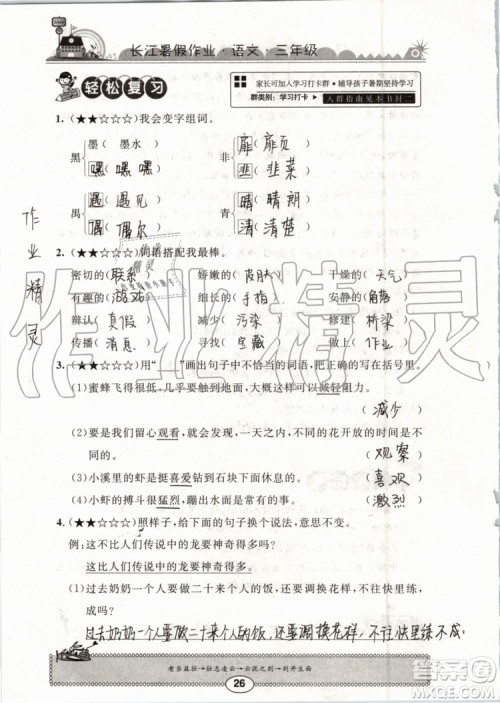 长江暑假作业·语文·三年级
轻松复习
家长可加入学习打卡群·辅导孩子暑期坚持学习
群类别：学习打卡 ▶ 入群指南见本书封二
1. (★★☆☆☆)我会变字组词。
黑 墨（ 墨水 ） 非 扉（扉页）
嘿（嘿嘿） 韭（韭菜）
禺 遇（遇见） 青 晴（晴朗）
偶（偶尔） 清（清楚）
2. (★★☆☆☆)词语搭配我最棒。
密切的（联系） 娇嫩的（皮肤） 干燥的（天气）
有趣的（游戏） 细长的（手指） 安静的（角落）
辨认（真假） 减少（污染） 修建（桥梁）
传播（消息） 寻找（宝藏） 做上（作业）
3. (★★☆☆☆)用“ ”画出句子中不恰当的词语，把正确的写在括号里。
(1)蜜蜂飞得很低，几乎要触到地面，大概这样可以减轻阻力。
（减少）
(2)要是我们留心观看，就会发现，一天之内，不同的花开放的时间是不同的。
（观察）
(3)小溪里的虾是挺喜爱钻到石块下面休息的。（喜欢）
(4)小虾的搏斗很猛烈，蹦出水面是常有的事。（激烈）
4. (★★☆☆☆)照样子，给下面的句子换个说法，意思不变。
例：这不比人们传说中的龙要神奇得多吗？
这要比人们传说中的龙要神奇得多。
(1)过去奶奶一个人要做二十来个人的饭，还要调换花样，不往快里练，
成吗？
过去奶奶一个人要做二十来个人的饭，还要调换花样，不往快里练不成。
老当益壮→壮志凌云→云泥之别→别开生面
26
作业精灵
作业精灵